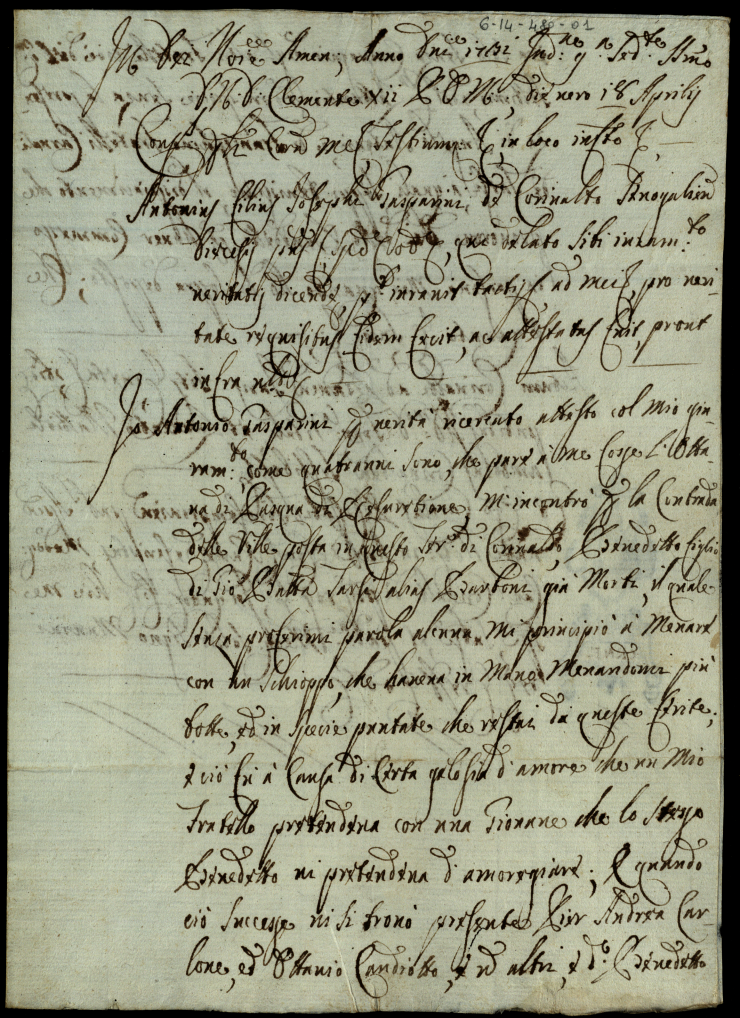 6-14-480-01
In Dei No:e Amen; Anno Dni 1732 Ind:ne Sed:te SSmo
D. N. D. Clemente XII P. O. M, die vero 18 Aprilis
Const coram me testium in loco infto
Antonius filius Josephi Gasparini de Corinalto Senogalien
Diecesis que delato sibi iuram:to
veritatis dicende pt iuravit tactis ad mei, pro veri-
tate requisitus fidem fecit, ac attestatus fuit, prout
infra
Jo Antonio Gasparini verità ricercato attesto col mio giu-
ram:to come quatranni sono, che pare à me fosse l'otta-
va di Pasqua di Resuretione, m'incontrò la Contrada
delle Ville posta in questo Ter: di Corinalto, Benedetto figlio
di Gio Batta Tarsi alias Barboni già Morti, il quale
senza proferirmi parola alcuna Mi principiò à Menare
con un schioppo, che haveva in Mano Menandomi più
botte, ed in specie puntate che restai da queste ferite;
e ciò fu à Causa di Certa gelosia d'amore che un Mio
fratello pretendeva con una Giovane che lo stesso
Benedetto vi pretendeva d'amoregiare; E quando
ciò successe vi si trovò presente Pier Andrea Car-
lone, ed Ottavio Candiotto, ed altri, e d:o Benedetto